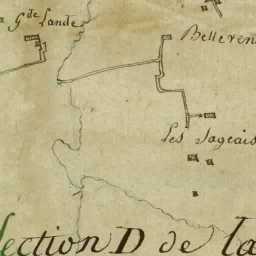 G.de Lande
Belleven
Les Jageais
Section D de la